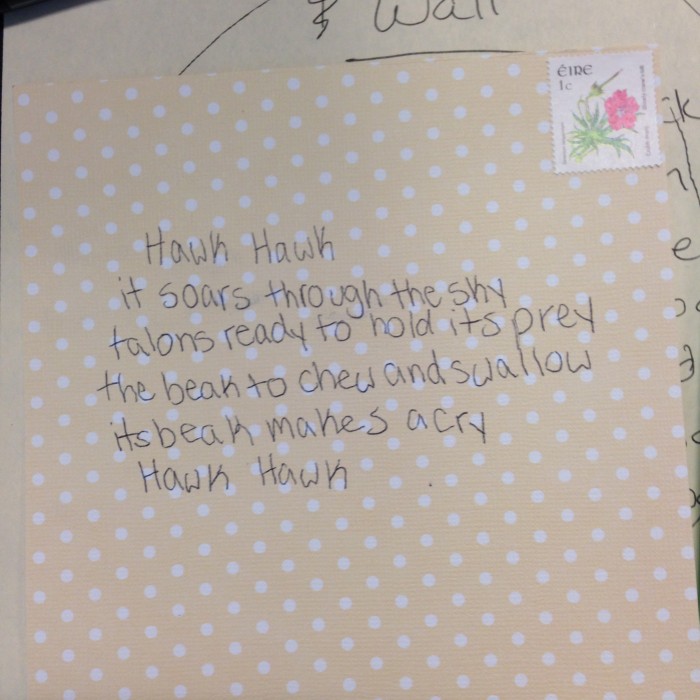 & Wall
ÉIRE
1c
Hawk Hawk
it soars through the sky
talons ready to hold its prey
the beak to chew and swallow
its beak makes a cry
Hawk Hawk